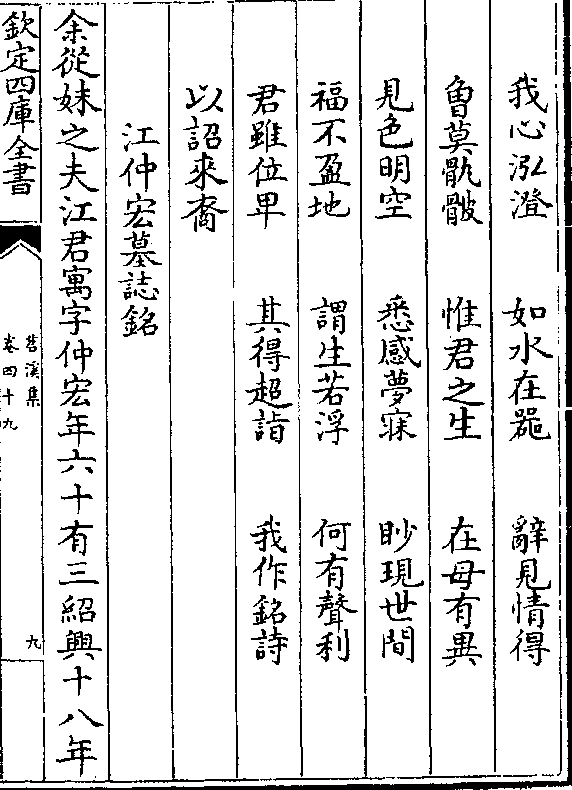 我心泓澄　如水在噐　辭見情得
曾莫骯髒　惟君之生　在母有異
見色明空　悉感夢寐　眇現世間
福不盈地　謂生若浮　何有聲利
君雖位卑　其得超詣　我作銘詩
以詔來裔
江仲宏墓誌銘
余從妹之夫江君寓字仲宏年六十有三紹興十八年
欽定四庫全書
苕溪集
卷四十九
九